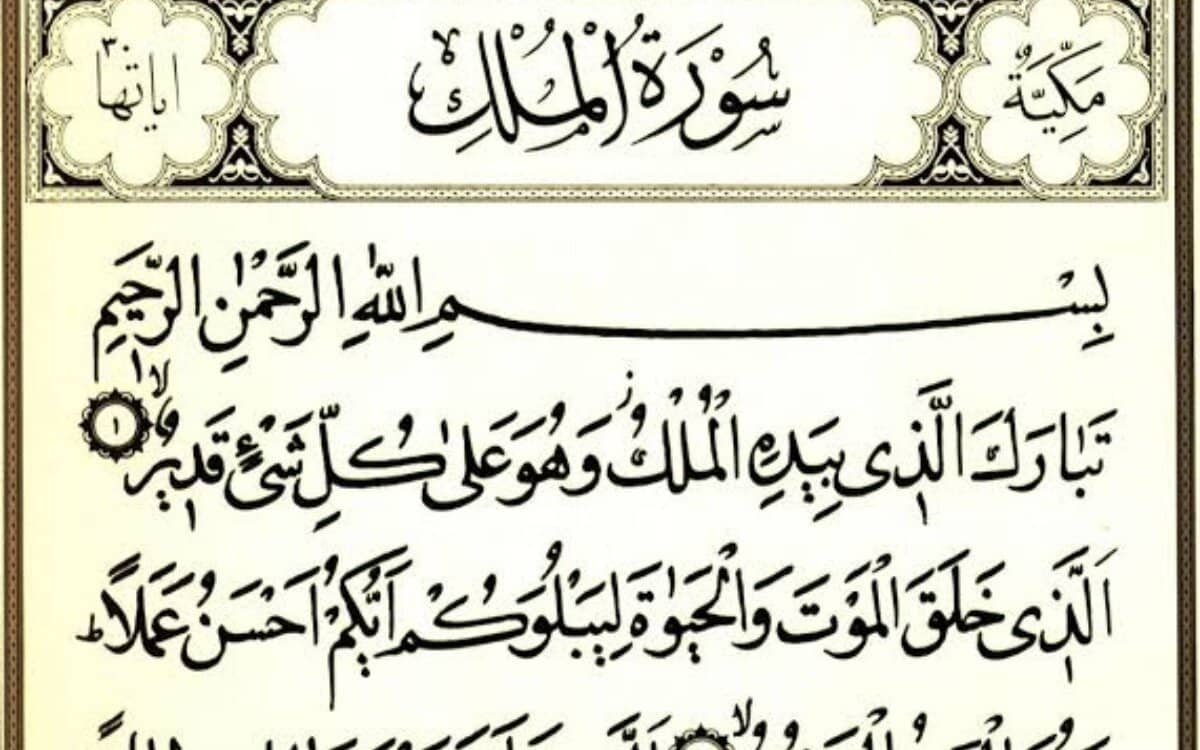 مَكِّيَّةٌ سُورَةُ الْمُلْكِ اياتها ٣٠
بِسْمِ اللّٰهِ الرَّحْمٰنِ الرَّحِيمِ
تَبَارَكَ الَّذِى بِيَدِهِ الْمُلْكُ ز وَهُوَ عَلٰى كُلِّ شَىْءٍ قَدِيرٌ لا ١
اَلَّذِى خَلَقَ الْمَوْتَ وَالْحَيٰوةَ لِيَبْلُوَكُمْ اَيُّكُمْ اَحْسَنُ عَمَلًا ط